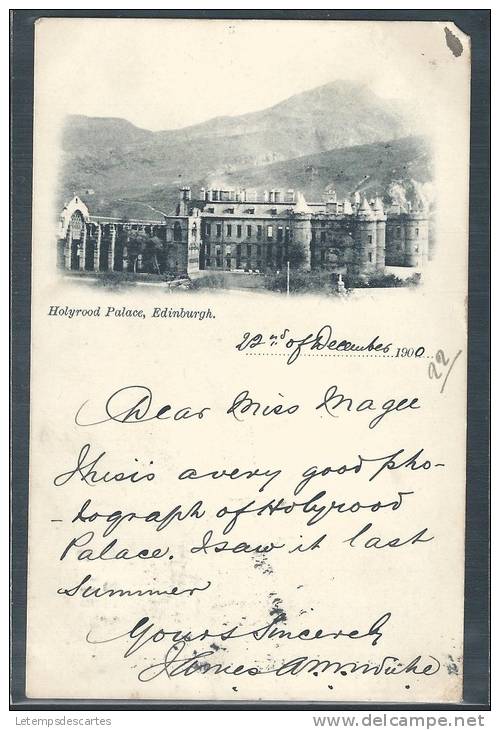 Holyrood Palace, Edinburgh.
22nd of December 1900
22
Dear Miss Magee
This is a very good pho-
-tograph of Holyrood
Palace. I saw it last
summer
Yours Sincerely
James
Letempsdescartes